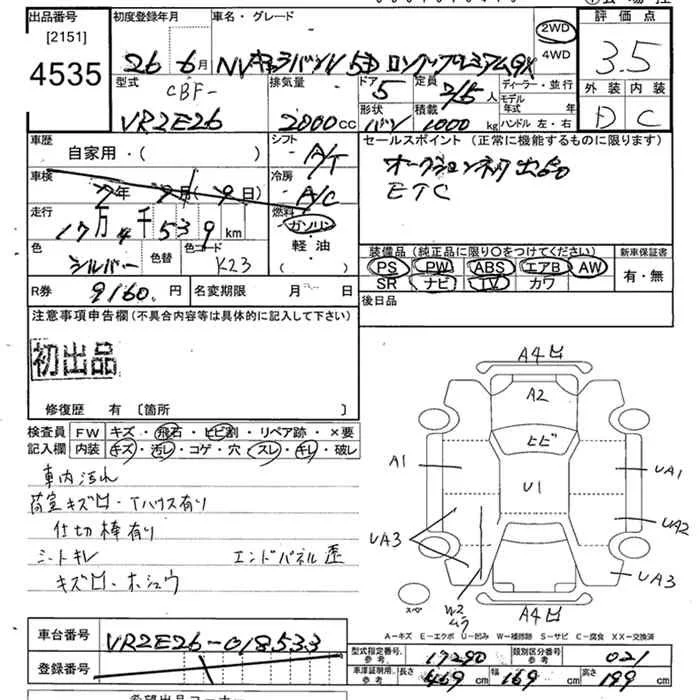 出品番号 初度登録年月 車名・グレード 評価点
[2151]
4535
26年6月 NVキャラバンV 5D ロングプレミアムGX 2WD 4WD 3.5
型式 CBF- 排気量 ドア 5 定員 2/5人 ディーラー・並行 外装 内装
モデル年式 年
VR2E26 2000cc 形状 バン 積載 1000kg ハンドル 左・右 D C
車歴 自家用・( ) シフト A/T セールスポイント (正常に機能するものに限ります)
車検 年 月( 9日) 冷房 A/C オークションネク出品
ETC
走行 17万4千539km 燃料 ガソリン
軽油
( )
色 シルバー 色替 色コード K23
装備品 (純正品に限り○をつけてください) 新車保証書
PS PW ABS エアB AW 有・無
SR ナビ TV カワ
R券 9160円 名変期限 月 日 後日品
注意事項申告欄(不具合内容等は具体的に記入して下さい)
初出品
修復歴 有 [箇所 ]
検査員 FW キズ・飛石・ヒビ割・リペア跡・×要
記入欄 内装 キズ・汚れ・コゲ・穴・スレ・キレ・破レ
車内汚れ
荷室キズ凹・Tハウス有り
仕切棒有り
シートキレ エンドパネル歪
キズ凹・ホシュウ
A4凹
A2
ヒビ
A1 U1 UA1
UA2
UA3 UA3
W2 ムラ
スペ
A4凹
A-キズ E-エクボ U-凹み W-補修跡 S-サビ C-腐食 XX-交換済
車台番号 VR2E26-018533
登録番号
型式指定番号.参考 17290 類別区分番号.参考 021
車庫証明用.参考 長さ 469cm 幅 169cm 高さ 199cm